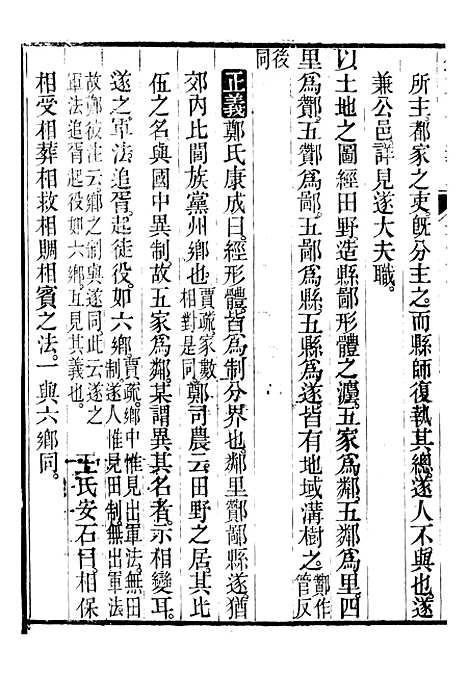 所主都家之吏既分主之而縣師復執其總遂人不與也遂
兼公邑詳見遂大夫職
以土地之圖經田野造縣鄙形體之灋五家爲鄰五鄰爲里四
里爲酇五酇爲鄙五鄙爲縣五縣爲遂皆有地域溝樹之酇作管反
後同
正義鄭氏康成曰經形體皆爲制分界也鄰里酇鄙縣遂猶
郊內比閭族黨州鄉也賈疏家數相對是同鄭司農云田野之居其比
伍之名與國中異制故五家爲鄰某謂異其名者示相變耳
遂之軍法追胥起徒役如六鄉賈疏鄉中惟見出軍法無田制遂人惟見田制無出軍法
故鄭彼注云鄉之制與遂同此云遂之軍法追胥起役如六鄉互見其義也王氏安石曰相保
相受相葬相救相賙相賓之法一與六鄉同